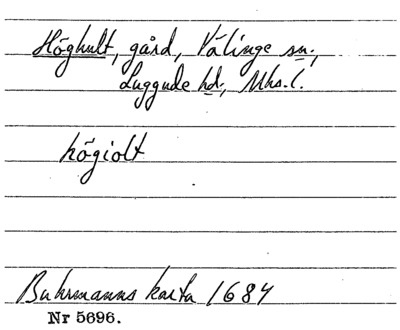 Höghult, gård, Välinge sn.,
Luggude hd., Mhs. l.
högiolt
Buhrmanns karta 1684
Nr 5696.